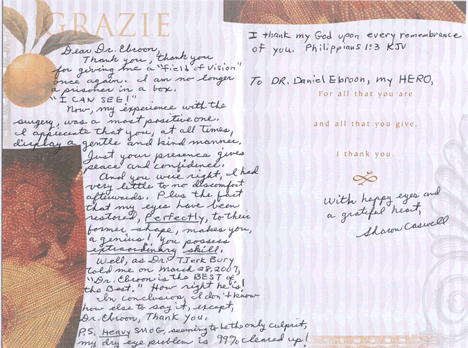 GRAZIE
Dear Dr. Ebroon,
Thank you, thank you
for giving me a "field of vision"
once again. I am no longer
a prisoner in a box.
"I CAN SEE!"
Now, my experience with the
surgery, was a most positive one.
I appreciate that you, at all times,
display a gentle and kind manner.
Just your presence gives
peace and confidence.
And you were right, I had
very little to no discomfort
afterwards. Plus the fact
that my eyes have been
restored, Perfectly, to their
former shape, makes you,
a genius! You possess
extraordinary skill.
Well, as Dr. Tjerk Bury
told me on March 28, 2007,
"Dr. Ebroon is the BEST of
the Best." How right he is!
In conclusion, I don't know
how else to say it, except,
Dr. Ebroon, Thank You.
P.S. Heavy SMOG, seeming to be the only culprit,
my dry eye problem is 99% cleared up!
I thank my God upon every remembrance
of you. Philippians 1:3 KJV
To DR. Daniel Ebroon, my HERO,
For all that you are
and all that you give,
I thank you.
With happy eyes and
a grateful heart,
Sharon Caswell